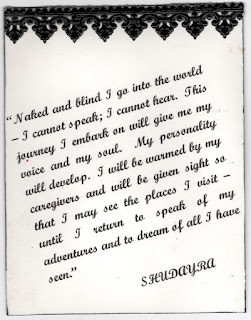 “Naked and blind I go into the world
– I cannot speak; I cannot hear. This
journey I embark on will give me my
voice and my soul. My personality
will develop. I will be warmed by my
caregivers and will be given sight so
that I may see the places I visit –
until I return to speak of my
adventures and to dream of all I have
seen.”
SHUDAYRA